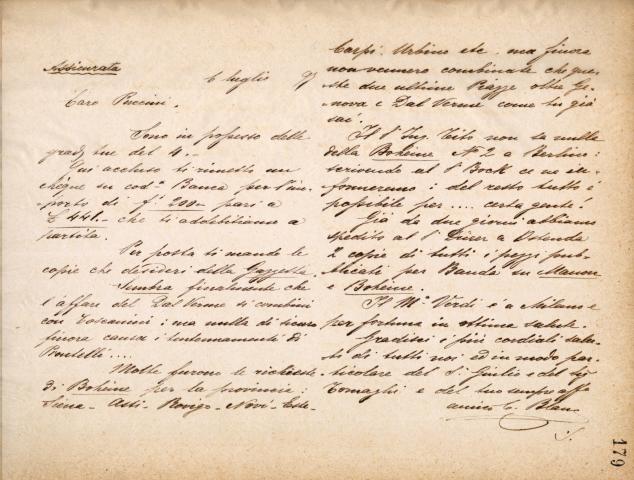 Assicurata
6 luglio 97
Caro Puccini.
Sono in possesso della
grad.ª tua del 4. –
Qui accluso ti rimetto un
chèque su cod.ª Banca per l'im-
porto di f.' 200 – pari a
£ 441. – che ti addebitiamo a
partita.
Per posta ti mando le
copie che desideri della Gazzetta.
Sembra finalmente che
l'affare del Dal Verme si combini
con Toscanini: ma nulla di sicuro
finora causa i tentennamenti di
Molte furono le richieste
di Bohème per la provincia:
Siena – Asti – Rovigo – Novi – Este –
Carpi – Urbino etc. ma finora
non vennero combinate che que-
ste due ultime Piazze oltre Ge-
nova e Dal Verme come tu già
sai.
Il S.r Ing. Tito non sa nulla
della Bohème N° 2 a Berlino:
scrivendo al S.r Bock ce ne in-
formeremo: del resto tutto è
possibile per .... certa gente!
Già da due giorni abbiamo
spedito al S.r a Ostenda
2 copie di tutti i pezzi pub-
blicati per Banda su Manon
e Bohème.
Il M.º Verdi è a Milano e
per fortuna in ottima salute.
Gradisci i più cordiali salu-
ti di tutti noi ed in modo par-
ticolare del S. Giulio e del Sig
Tornaghi e del tuo sempre aff.
amico C. Blanc
179